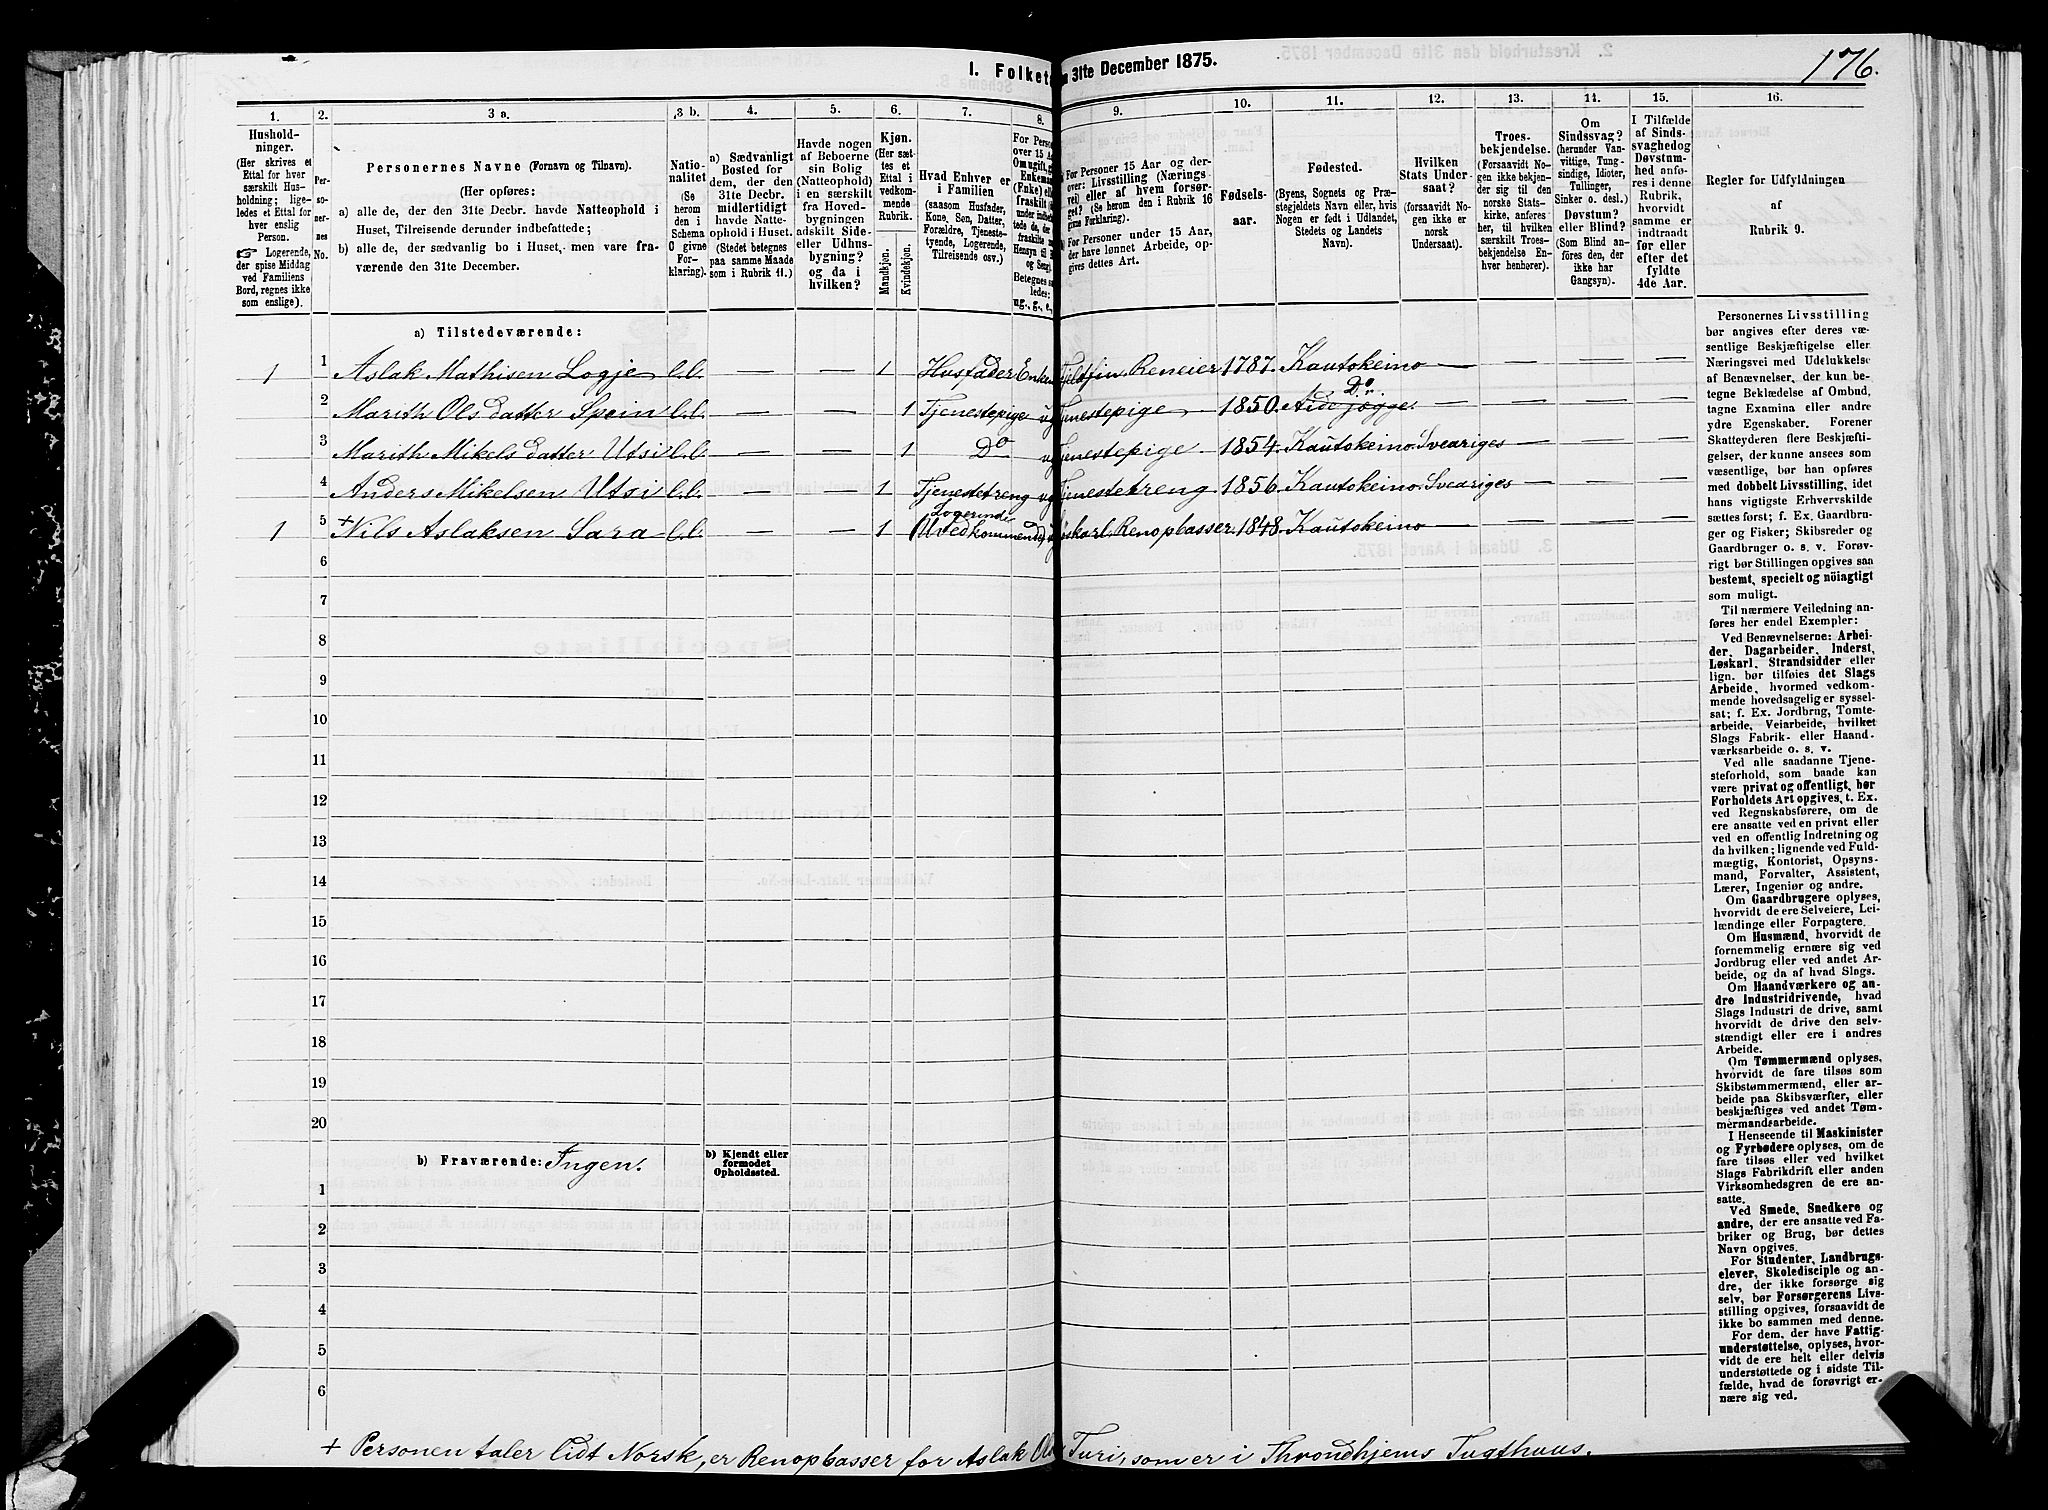 176.
1. Folket
n 31te December 1875.
1. 2. 3 a. 3 b. 4. 5. 6. 7. 8. 9. 10. 11. 12. 13. 14. 15. 16.
Hushold-
ninger.
(Her skrives et
Ettal for hver
særskilt Hus-
holdning; lige-
ledes et Ettal for
hver enslig
Person.
☞ Logerende,
der spise Middag
ved Familiens
Bord, regnes ikke
som enslige).
Per-
so-
ner-
nes
No.
Personernes Navne (Fornavn og Tilnavn).
(Her opføres:
a) alle de, der den 31te Decbr. havde Natteophold i
Huset, Tilreisende derunder indbefattede;
b) alle de, der sædvanlig bo i Huset, men vare fra-
værende den 31te December.
Natio-
nalitet
(Se
herom
den i
Schema
C givne
For-
klaring).
a) Sædvanligt
Bosted for
dem, der den
31te Decbr.
midlertidigt
havde Natte-
ophold i Huset.
(Stedet betegnes
paa samme Maade
som i Rubrik 11.)
Havde nogen
af Beboerne
sin Bolig
(Natteophold)
i en særskilt
fra Hoved-
bygningen
adskilt Side-
eller Udhus-
bygning?
og da i
hvilken?
Kjøn.
(Her sæt-
tes et
Ettal i
vedkom-
mende
Rubrik.
Mandkjøn.
Kvindekjøn.
Hvad Enhver er
i Familien
(saasom Husfader,
Kone, Søn, Datter,
Forældre, Tjeneste-
tyende, Logerende,
Tilreisende osv.)
For Perso
over 15 Aa
Om ugift, g
Enkeman
(Enke) elle
fraskilt
ug., g., e,
For Personer 15 Aar og der-
over: Livsstilling (Nærings-
vei) eller af hvem forsør-
get? (Se herom den i Rubrik 16
givne Forklaring).
For Personer under 15 Aar,
der have lønnet Arbeide, op-
gives dettes Art.
Fødsels-
aar.
Fødested.
(Byens, Sognets og Præ-
stegjeldets Navn eller, hvis
Nogen er født i Udlandet,
Stedets og Landets
Navn).
Hvilken
Stats Under-
saat?
(forsaavidt No-
gen ikke er
norsk
Undersaat).
Troes-
bekjendelse.
(Forsaavidt No-
gen ikke bekjen-
der sig til den
norske Stats-
kirke, anføres
her, til hvilken
særskilt Troes-
bekjendelse En-
hver henhører).
Om
Sindssvag?
(herunder Van-
vittige, Tung-
sindige, Idioter,
Tullinger,
Sinker o. desl.)
Døvstum?
eller Blind?
(Som Blind an-
føres den, der
ikke har
Gangsyn).
I Tilfælde
af Sinds-
svaghed og
Døvstum-
hed anfø-
res i denne
Rubrik,
hvorvidt
samme er
indtraadt
før eller
efter det
fyldte
4de Aar.
Regler for Udfyldningen
af
Rubrik 9.
a) Tilstedeværende:
1 1 Aslak Mathisen Logje l.l. — — 1 Husfader Enkem Fjeldfin Reneier 1787. Kautokeino — — — —
2 Marith Olsdatter Spein l.l. — — 1 Tjenestepige ug Tjenestepige 1850. Aidejogge. Do — — — —
3 Marith Mikelsdatter Utsi l.l. — — 1 Do ug Tjenestepige 1854. Kautokeino. Sveariges — — —
4 Anders Mikelsen Utsi l.l. — — 1 Tjenestetreng ug Tjenestetreng 1856. Kautokeino. Sveariges — — —
1 5 + Nils Aslaksen Sara l.l. — — 1 Logerende Uvedkommende Løskarl. Renopbasser. 1848. Kautokeino — — — —
6
7
8
9
10
11
12
13
14
15
16
17
18
19
20
b) Fraværende: Ingen.
b) Kjendt eller
formodet
Opholdssted.
1
2
3
4
5
6
Personernes Livsstilling
bør angives efter deres væ-
sentlige Beskjæftigelse eller
Næringsvei med Udelukkelse
af Benævnelser, der kun be-
tegne Beklædelse af Ombud,
tagne Examina eller andre
ydre Egenskaber. Forener
Skatteyderen flere Beskjæfti-
gelser, der kunne ansees som
væsentlige, bør han opføres
med dobbelt Livsstilling, idet
hans vigtigste Erhvervskilde
sættes først; f. Ex. Gaardbru-
ger og Fisker; Skibsreder og
Gaardbruger o. s. v. Forøv-
rigt bør Stillingen opgives saa
bestemt, specielt og nöiagtigt
som muligt.
Til nærmere Veiledning an-
føres her endel Exempler:
Ved Benævnelserne: Arbei-
der, Dagarbeider, Inderst,
Løskarl, Strandsidder eller
lign. bør tilføies det Slags
Arbeide, hvormed vedkom-
mende hovedsagelig er syssel-
sat; f. Ex. Jordbrug, Tomte-
arbeide, Veiarbeide, hvilket
Slags Fabrik- eller Haand-
værksarbeide o. s. v.
Ved alle saadanne Tjene-
steforhold, som baade kan
være privat og offentligt, bør
Forholdets Art opgives, t. Ex.
ved Regnskabsførere, om de
ere ansatte ved en privat eller
ved en offentlig Indretning og
da hvilken; lignende ved Fuld-
mægtig, Kontorist, Opsyns-
mand, Forvalter, Assistent,
Lærer, Ingeniør og andre.
Om Gaardbrugere oplyses,
hvorvidt de ere Selveiere, Lei-
lændinge eller Forpagtere.
Om Husmænd, hvorvidt de
fornemmelig ernære sig ved
Jordbrug eller ved andet Ar-
beide, og da af hvad Slags.
Om Haandværkere og an-
dre Industridrivende, hvad
Slags Industri de drive, samt
hvorvidt de drive den selv-
stændigt eller ere i andres
Arbeide.
Om Tømmermænd oplyses,
hvorvidt de fare tilsøs som
Skibstømmermænd, eller ar-
beide paa Skibsværfter, eller
beskjæftiges ved andet Tøm-
mermandsarbeide.
I Henseende til Maskinister
og Fyrbødere oplyses, om de
fare tilsøs eller ved hvilket
Slags Fabrikdrift eller anden
Virksomhedsgren de ere an-
satte.
Ved Smede, Snedkere og
andre, der ere ansatte ved Fa-
briker og Brug, bør dettes
Navn opgives.
For Studenter, Landbrugs-
elever, Skoledisciple og an-
dre, der ikke forsørge sig
selv, bør Forsørgerens Livs-
stilling opgives, forsaavidt de
ikke bo sammen med denne.
For dem, der have Fattig-
understøttelse, oplyses, hvor-
vidt de ere helt eller delvis
understøttede og i sidste Til-
fælde, hvad de forøvrigt er-
nære sig ved.
+ Personen taler lidt Norsk, er Renopbasser for Aslak Ols Turi, som er i Throndhjems Tugthuus.